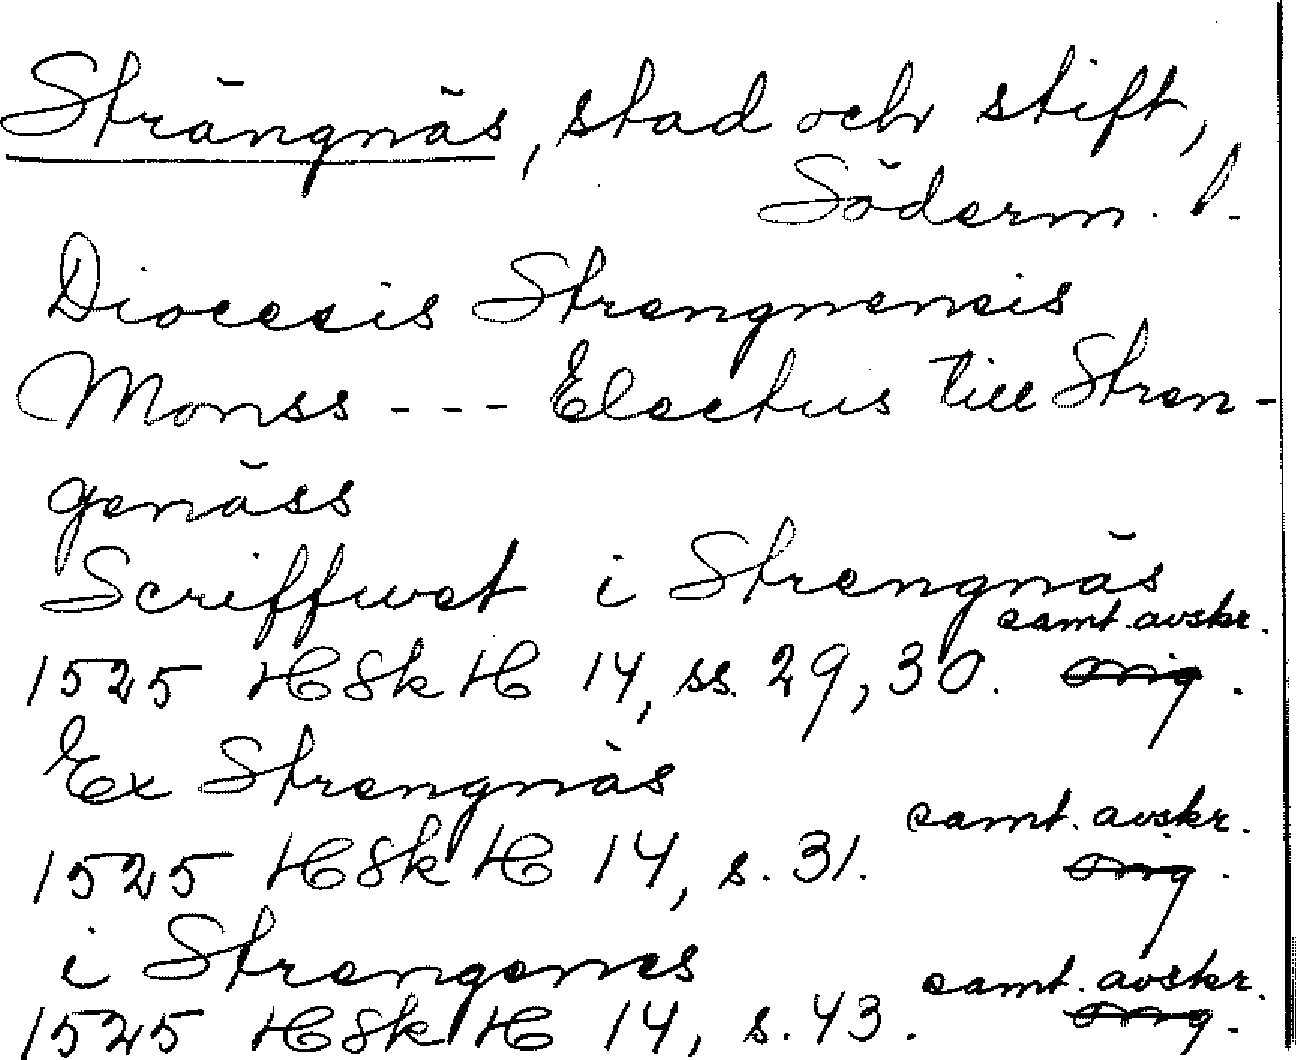 Strängnäs, stad och stift,
Söderm. l.
Diocesis Strengnensis
Monss - - - Electus till Stren-
genäss
Scriffwet i Strengnäs
samt. avskr.
1525 HSkH 14, ss. 29, 30. orig.
Ex Strengnäs
samt. avskr.
1525 HSkH 14, s. 31. orig.
i Strengenes
samt. avskr.
1525 HSkH 14, s. 43. orig.